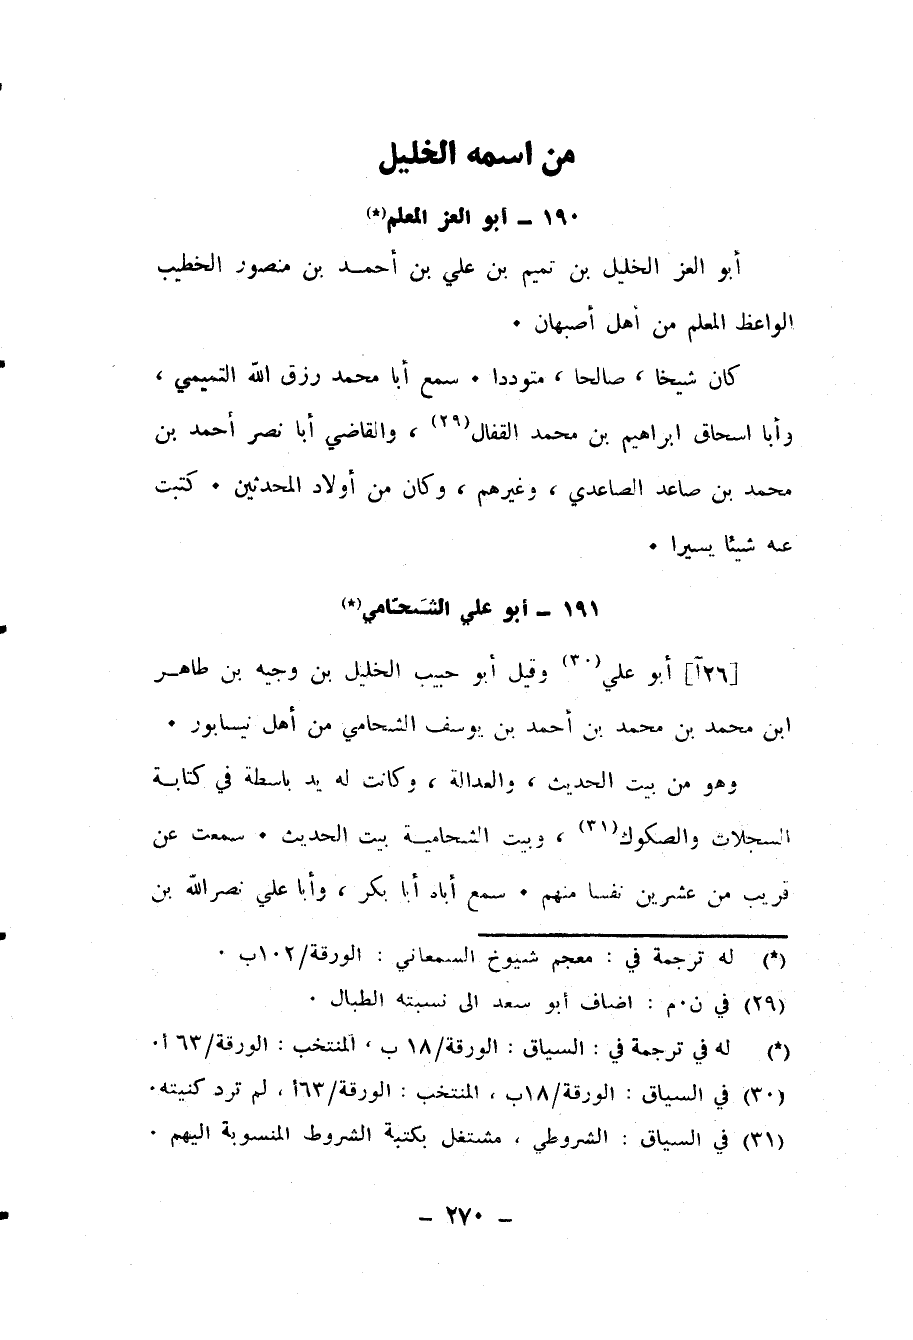 من اسمه الخليل
١٩٠ ـ أبو العز المعلم(*)
أبو العز الخليل بن تميم بن علي بن أحمـد بن منصور الخطيب
الواعظ المعلم من أهل أصبهان ٠
كان شيخا ، صالحا ، متوددا ٠ سمع أبا محمد رزق الله التميمي ،
وأبا اسحاق ابراهيم بن محمد القفال(٢٩) ، والقاضي أبا نصر أحمد بن
محمد بن صاعد الصاعدي ، وغيرهم ، وكان من أولاد المحدثين ٠ كتبت
عنه شيئا يسيرا ٠
١٩١ ـ أبو علي الشَحّامي(*)
[٢٦آ] أبو علي(٣٠) وقيل أبو حبيب الخليل بن وجيه بن طاهـر
ابن محمد بن محمد بن أحمد بن يوسف الشحامي من أهل نيسابور ٠
وهو من بيت الحديث ، والعدالة ، وكانت له يد باسطة في كتابـة
السجلات والصكوك(٣١) ، وبيت الشحاميـة بيت الحديث ٠ سمعت عن
قريب من عشرين نفسا منهم ٠ سمع أباه أبا بكر ، وأبا علي نصرالله بن
(*) له ترجمة في : معجم شيوخ السمعاني : الورقة/١٠٢ب ٠
(٢٩) في ن٠م : اضاف أبو سعد الى نسبته الطبال ٠
(*) له في ترجمة في : السياق : الورقة/١٨ ب ، المنتخب : الورقة/٦٣ أ٠
(٣٠) في السياق : الورقة/١٨ب ، المنتخب : الورقة/٦٣أ ، لم ترد كنيته٠
(٣١) في السياق : الشروطي ، مشتغل بكتبة الشروط المنسوبة اليهم ٠
ـ ٢٧٠ ـ